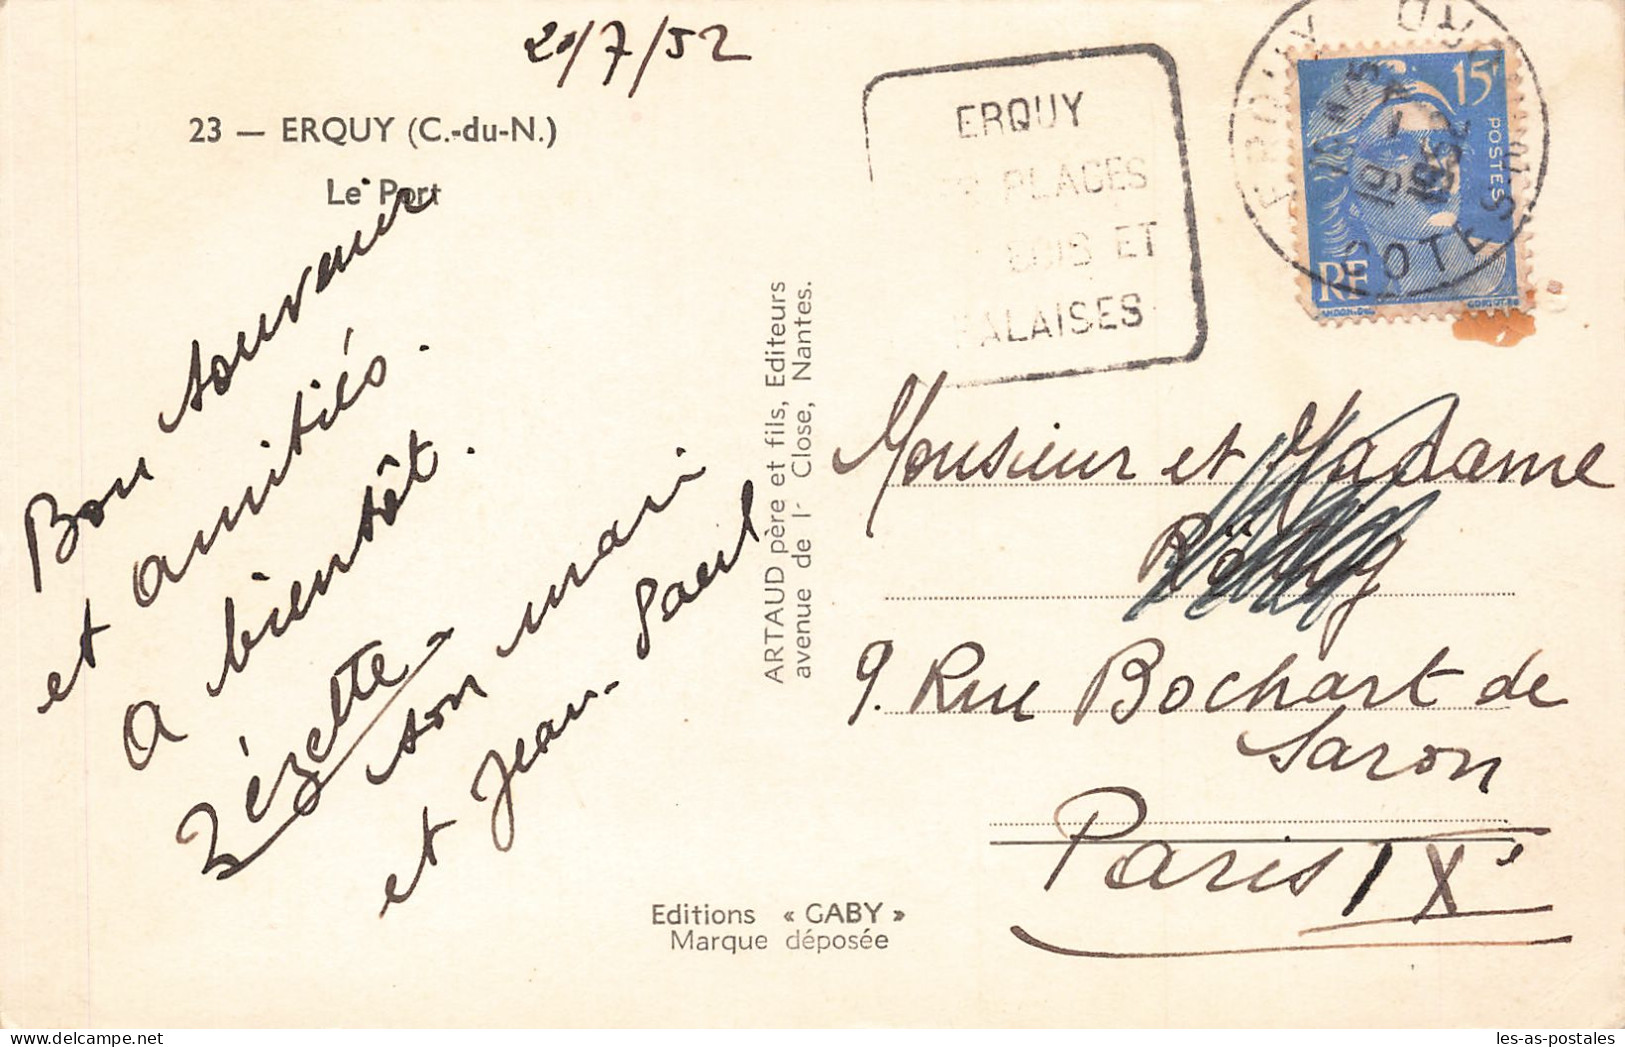 20/7/52
23 — ERQUY (C.-du-N.)
Le Port
Bon souvenir
et amitiés.
A bientôt.
Zézette
son mari
et Jean-Paul
ARTAUD père et fils, Editeurs
avenue de l' Close, Nantes.
Editions « GABY »
Marque déposée
ERQUY
PLAGES
BOIS ET
FALAISES
ERQUY
COTES-DU-NORD
1952
15F
POSTES
RF
Monsieur et Madame
9. Rue Bochart de
Saron
Paris IXe
les-as-postales